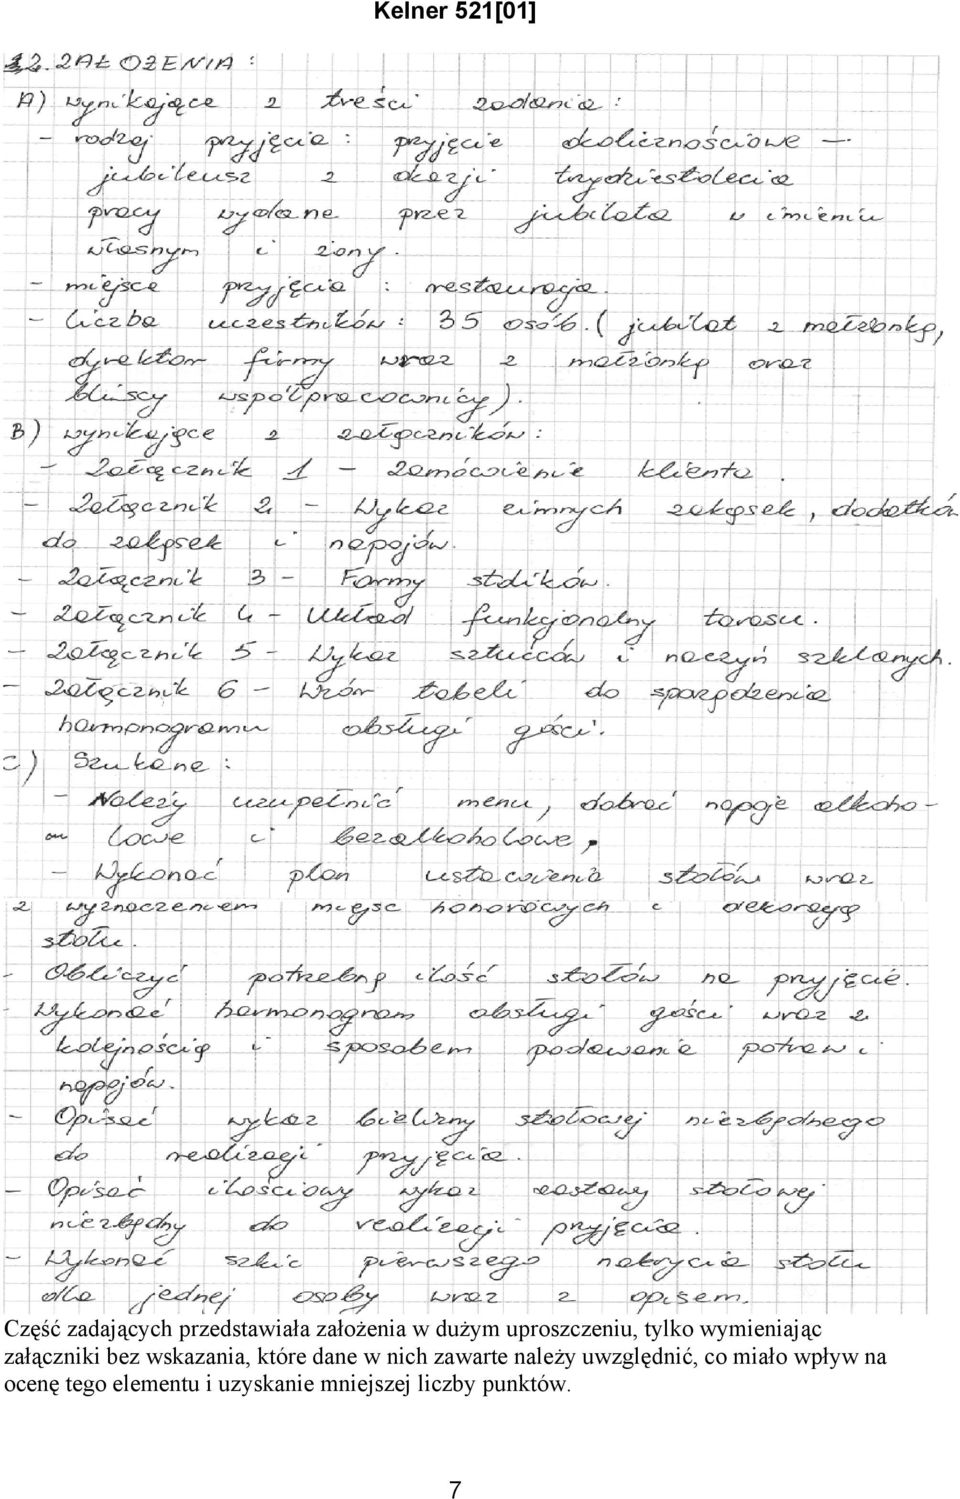 Kelner 521[01]
12. ZAŁOŻENIA :
A) wynikające z treści zadania :
- rodzaj przyjęcia : przyjęcie okolicznościowe -
jubileusz z okazji trzydziestolecia
pracy wydane przez jubilata w imieniu
własnym i żony.
- miejsce przyjęcia : restauracja.
- liczba uczestników : 35 osób. ( jubilat z małżonką,
dyrektor firmy wraz z małżonką oraz
bliscy współpracownicy).
B) wynikające z załączników :
- Załącznik 1 - Zamówienie klienta.
- Załącznik 2 - Wykaz zimnych zakąsek, dodatków
do zakąsek i napojów.
- Załącznik 3 - Formy stolików.
- Załącznik 4 - Układ funkcjonalny tarasu.
- Załącznik 5 - Wykaz sztućców i naczyń szklanych.
- Załącznik 6 - Wzór tabeli do sporządzenia
harmonogramu obsługi gości.
C) Szukane :
- Należy uzupełnić menu, dobrać napoje alkoho-
lowe i bezalkoholowe,
- Wykonać plan ustawienia stołów wraz
z wyznaczeniem miejsc honorowych i dekorację
stołu.
- Obliczyć potrzebną ilość stołów na przyjęcie.
- Wykonać harmonogram obsługi gości wraz z
kolejnością i sposobem podawania potraw i
napojów.
- Opisać wykaz bielizny stołowej niezbędnego
do realizacji przyjęcia.
- Opisać ilościowy wykaz zastawy stołowej
niezbędny do realizacji przyjęcia.
- Wykonać szkic pierwszego nakrycia stołu
dla jednej osoby wraz z opisem.
Część zdających przedstawiała założenia w dużym uproszczeniu, tylko wymieniając
załączniki bez wskazania, które dane w nich zawarte należy uwzględnić, co miało wpływ na
ocenę tego elementu i uzyskanie mniejszej liczby punktów.
7